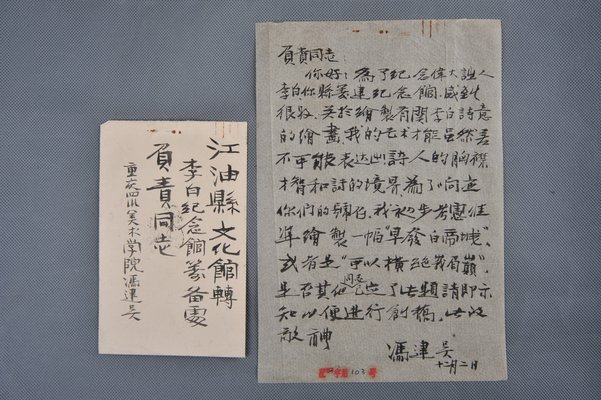 江油縣文化館轉
李白紀念館籌备處
負責同志
重庆四川美术学院馮建吴
負責同志：
你好！為了紀念偉大詩人
李白你縣籌建紀念館，感到
很好。关於繪製有関李白詩意
的繪畫，我的艺术才能虽然差
不可能表达出詩人的胸襟
才智和詩的境界，為了响应
你們的号召，我初步考慮準
繪製一幅"早發白帝城"，
或者是"可以橫绝峨眉巔"，
是否其他同志定了此題請即示
知以便進行創稿，此致
敬礼
馮建吴
十二月二日
103号